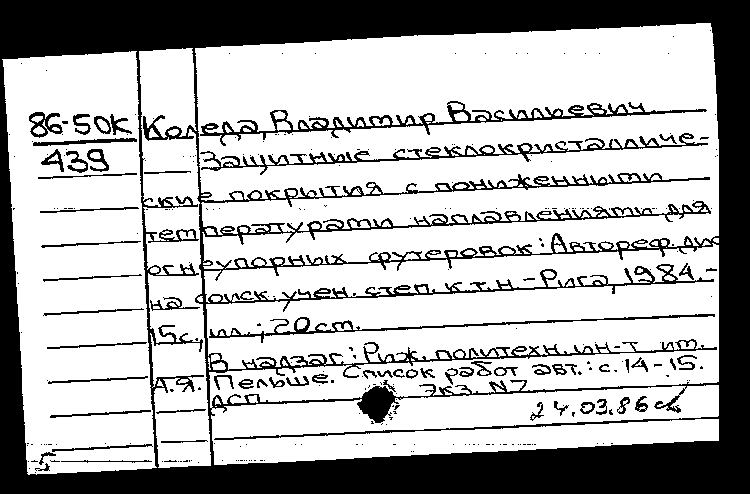 86-50К Коледа, Владимир Васильевич.
439 Защитные стеклокристалличе-
ские покрытия с пониженными
температурами наплавлениями для
огнеупорных футеровок: Автореф. дис
на соиск. учен. степ. к.т.н. - Рига, 1984. -
15с., ил.; 20 см.
В надзаг.: Риж. политехн. ин-т им.
А.Я. Пельше. Список работ авт.: с. 14-15.
ДСП. Экз. N7
24.03.86
5